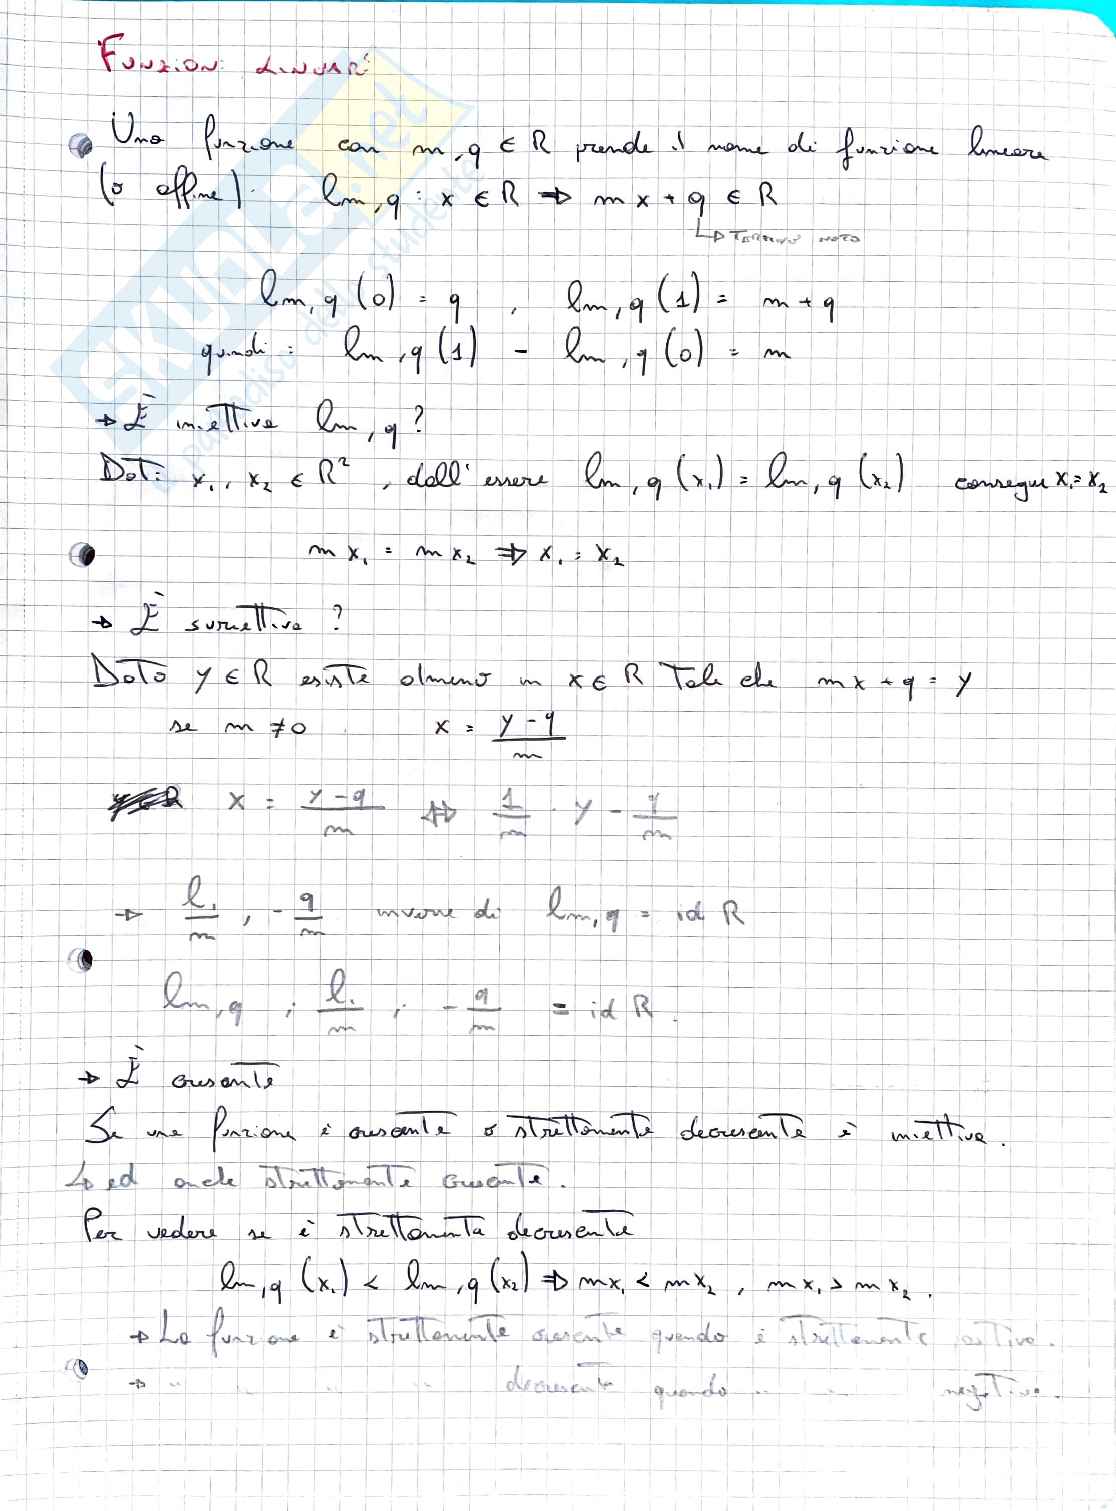 FUNZIONI LINEARI
Una funzione con m, q ∈ R prende il nome di funzione lineare
(o affine): lm,q : x ∈ R ⇒ m x + q ∈ R
↳ TERMINE NOTO
lm,q (0) = q , lm,q (1) = m + q
quindi: lm,q (1) - lm,q (0) = m
→ È iniettiva lm,q ?
Dati x₁, x₂ ∈ R², dall'essere lm,q (x₁) = lm,q (x₂) consegue x₁ = x₂
m x₁ = m x₂ ⇒ x₁ = x₂
→ È suriettiva ?
Dato y ∈ R esiste almeno un x ∈ R Tale che mx + q = y
se m ≠ 0 x = (y - q)/m
x = (y - q)/m ⇔ 1/m · y - q/m
→ l₁/m , - q/m inverse di lm,q = id R
lm,q ; l₁/m ; - q/m = id R.
→ È crescente
Se una funzione è crescente o strettamente decrescente è iniettiva.
↳ ed anche strettamente crescente.
Per vedere se è strettamente decrescente
lm,q (x₁) < lm,q (x₂) ⇒ mx₁ < mx₂ , mx₁ > mx₂ .
→ La funzione è strettamente crescente quando è strettamente positiva.
→ " " " " decrescente quando " " negativa.
SKUOLA.net
il paradiso dello studente